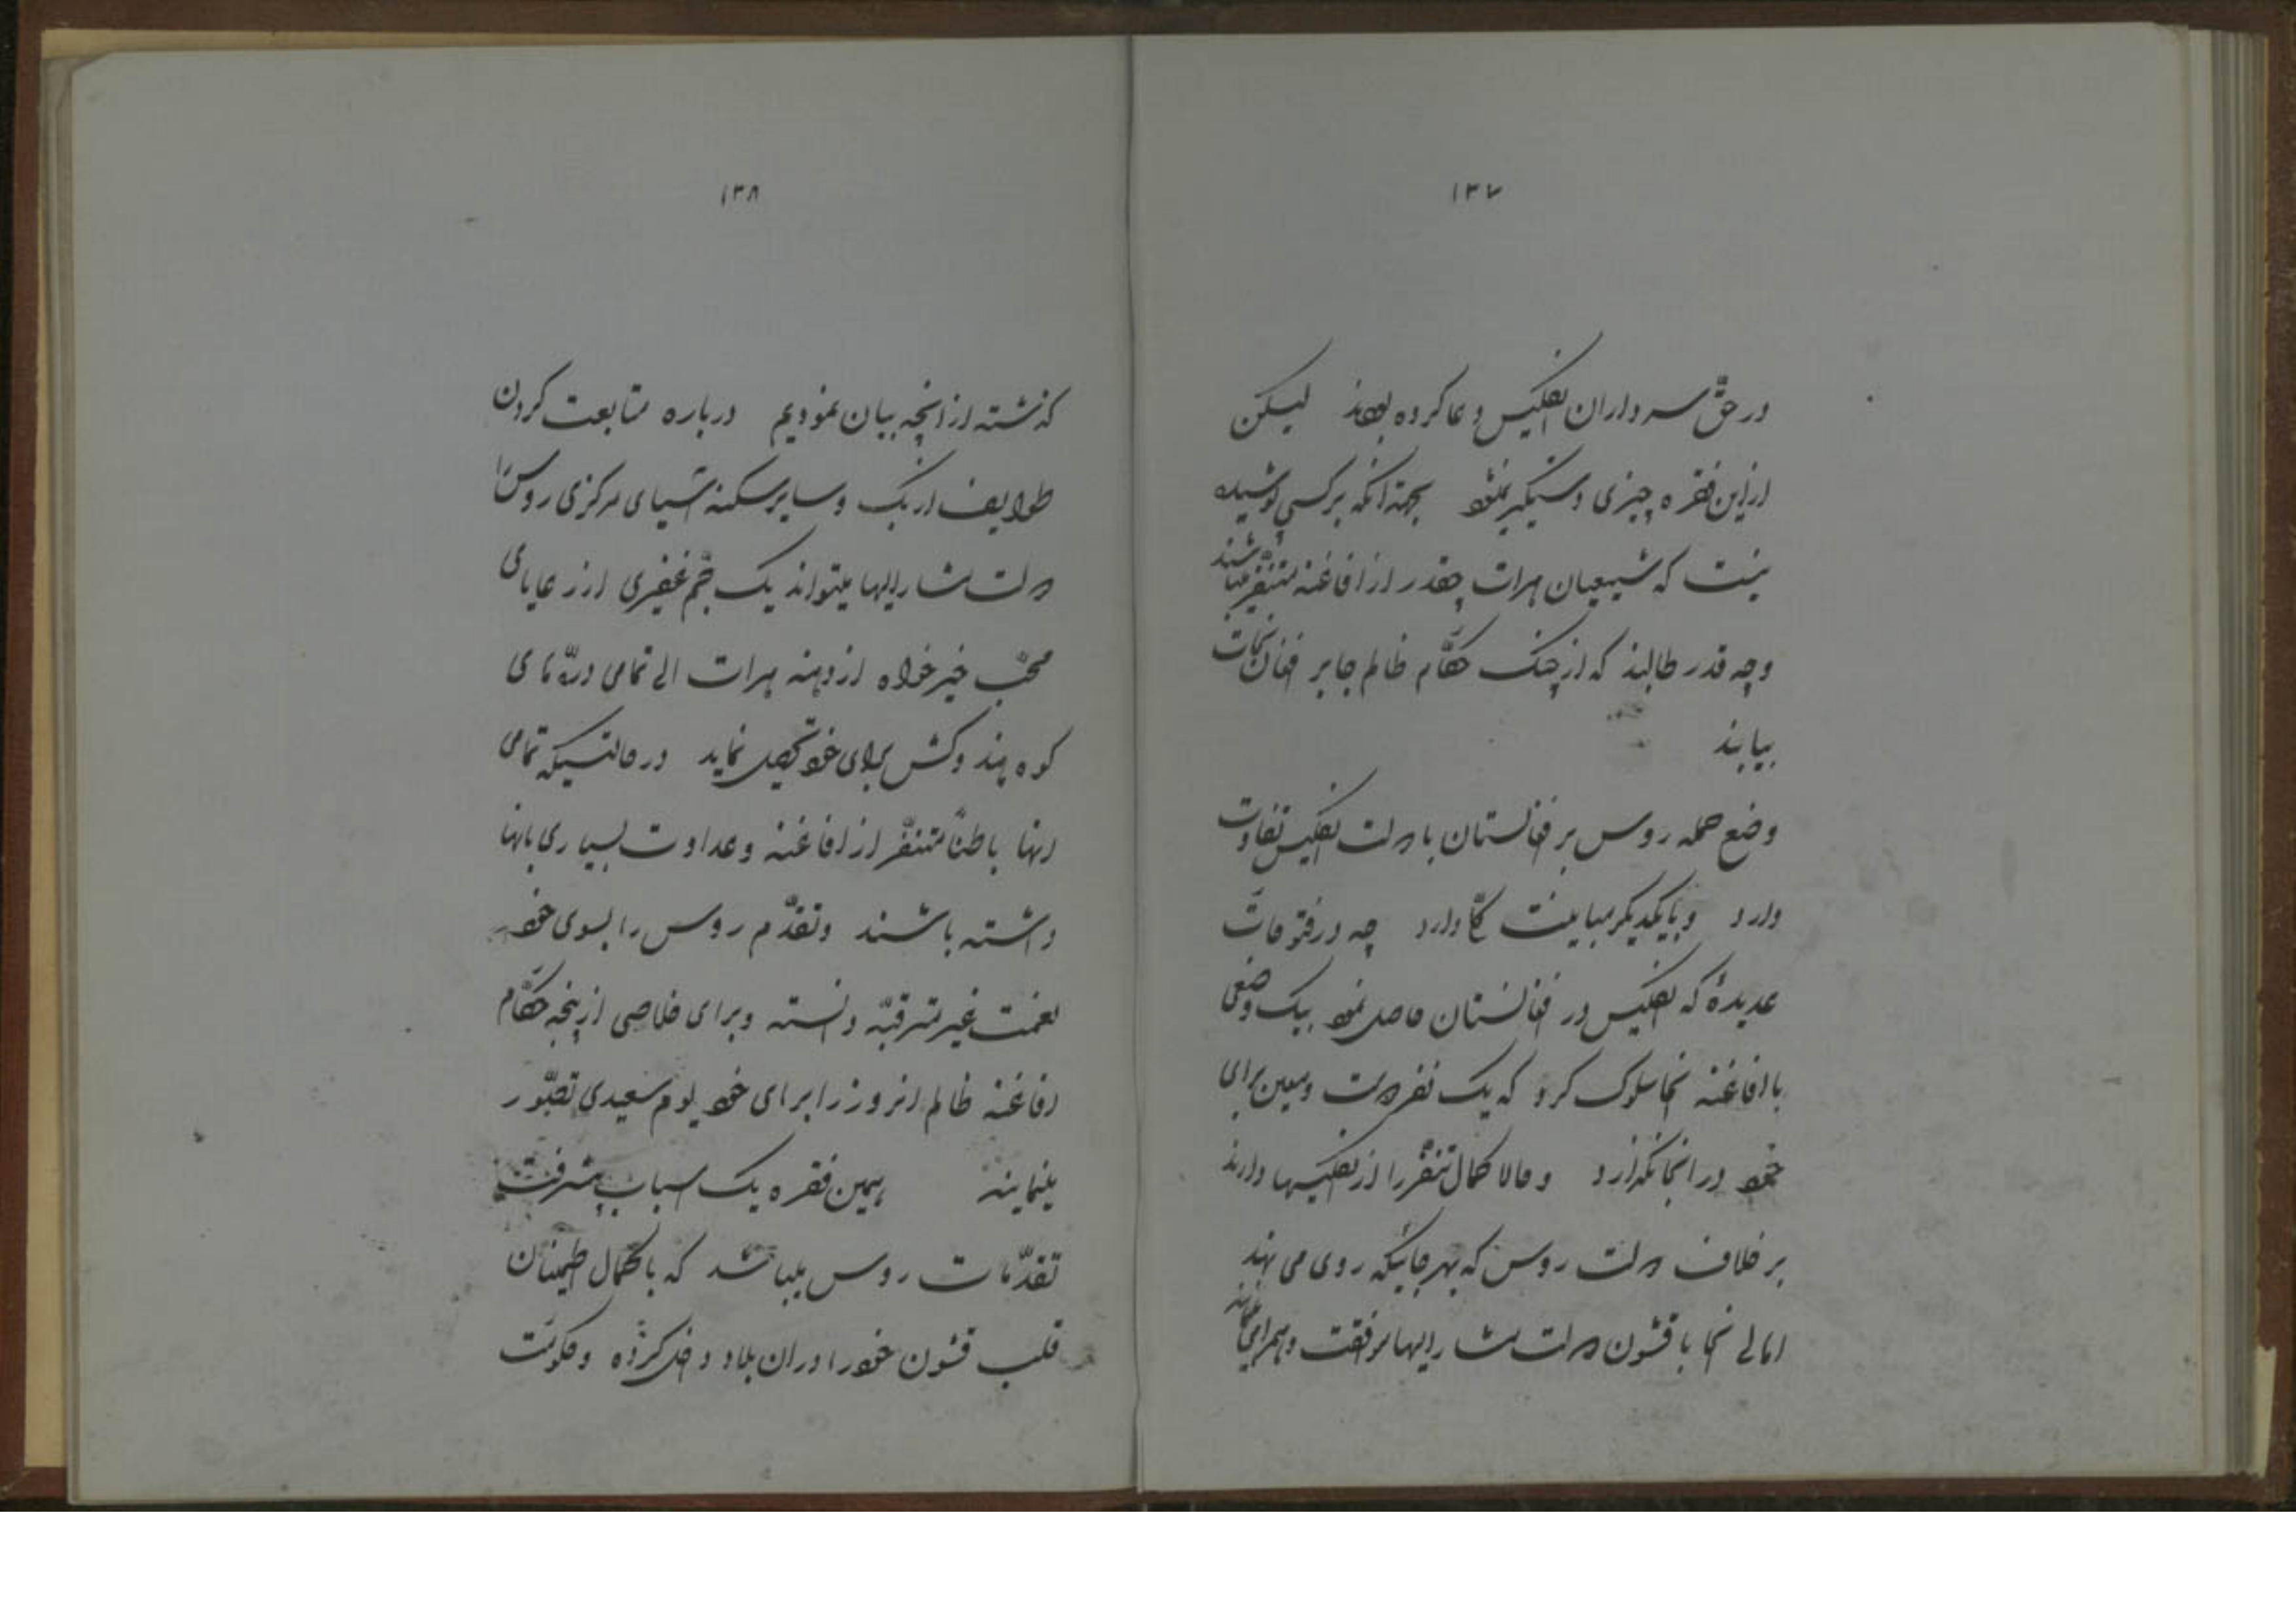 ۱۳۷
در حقّ سرداران انگلیس دعا کرده بودند لیکن
ازین فقره چیزی دستگیر نشود بجهة آنکه برکسی پوشیده
نیست که شیعیان هرات چقدر از افاغنه متنفر میباشند
و چه قدر طالبند که از چنگ حکّام ظالم جابر افغان نجات
بیابند
وضع حمله روس بر افغانستان با دولت انگلیس تفاوت
دارد و با یکدیگر مباینت کلّی دارد چه در فتوحات
عدیدهٔ که انگلیس در افغانستان حاصل نمود بیک وضعی
با افاغنه آنجا سلوک کرد که یک نفر دوست و معین برای
خود در آنجا نگذارد و حالا کمال تنفّر را از انگلیسها دارند
بر خلاف دولت روس که بهر جائیکه روی می نهد
اهالی آنجا با قشون دولت مشارالیها موافقت و همراهی
۱۳۸
گذشته از آنچه بیان نمودیم درباره متابعت کردن
طوایف ازبک و سایر سکنه آسیای مرکزی روس را
دولت مشارالیها میتواند یک جمّ غفیری از رعایای
محبّ خیرخواه از دهنه هرات الی تمامی درّه های
کوه هندوکش برای خود تحصیل نماید در حالتیکه تمامی
اینها باطناً متنفّر از افاغنه و عداوت بسیاری بانها
داشته باشند و تقدّم روس را بسوی خود
نعمت غیر مترقبّه دانسته و برای خلاصی از پنجه حکّام
افاغنه ظالم آنروز را برای خود یوم سعیدی تصّور
مینمایند همین فقره یک اسباب پیشرفت
تقدّمات روس میباشد که با کمال اطمینان
قلب قشون خود را در ان بلاد داخل کرده و حکومت